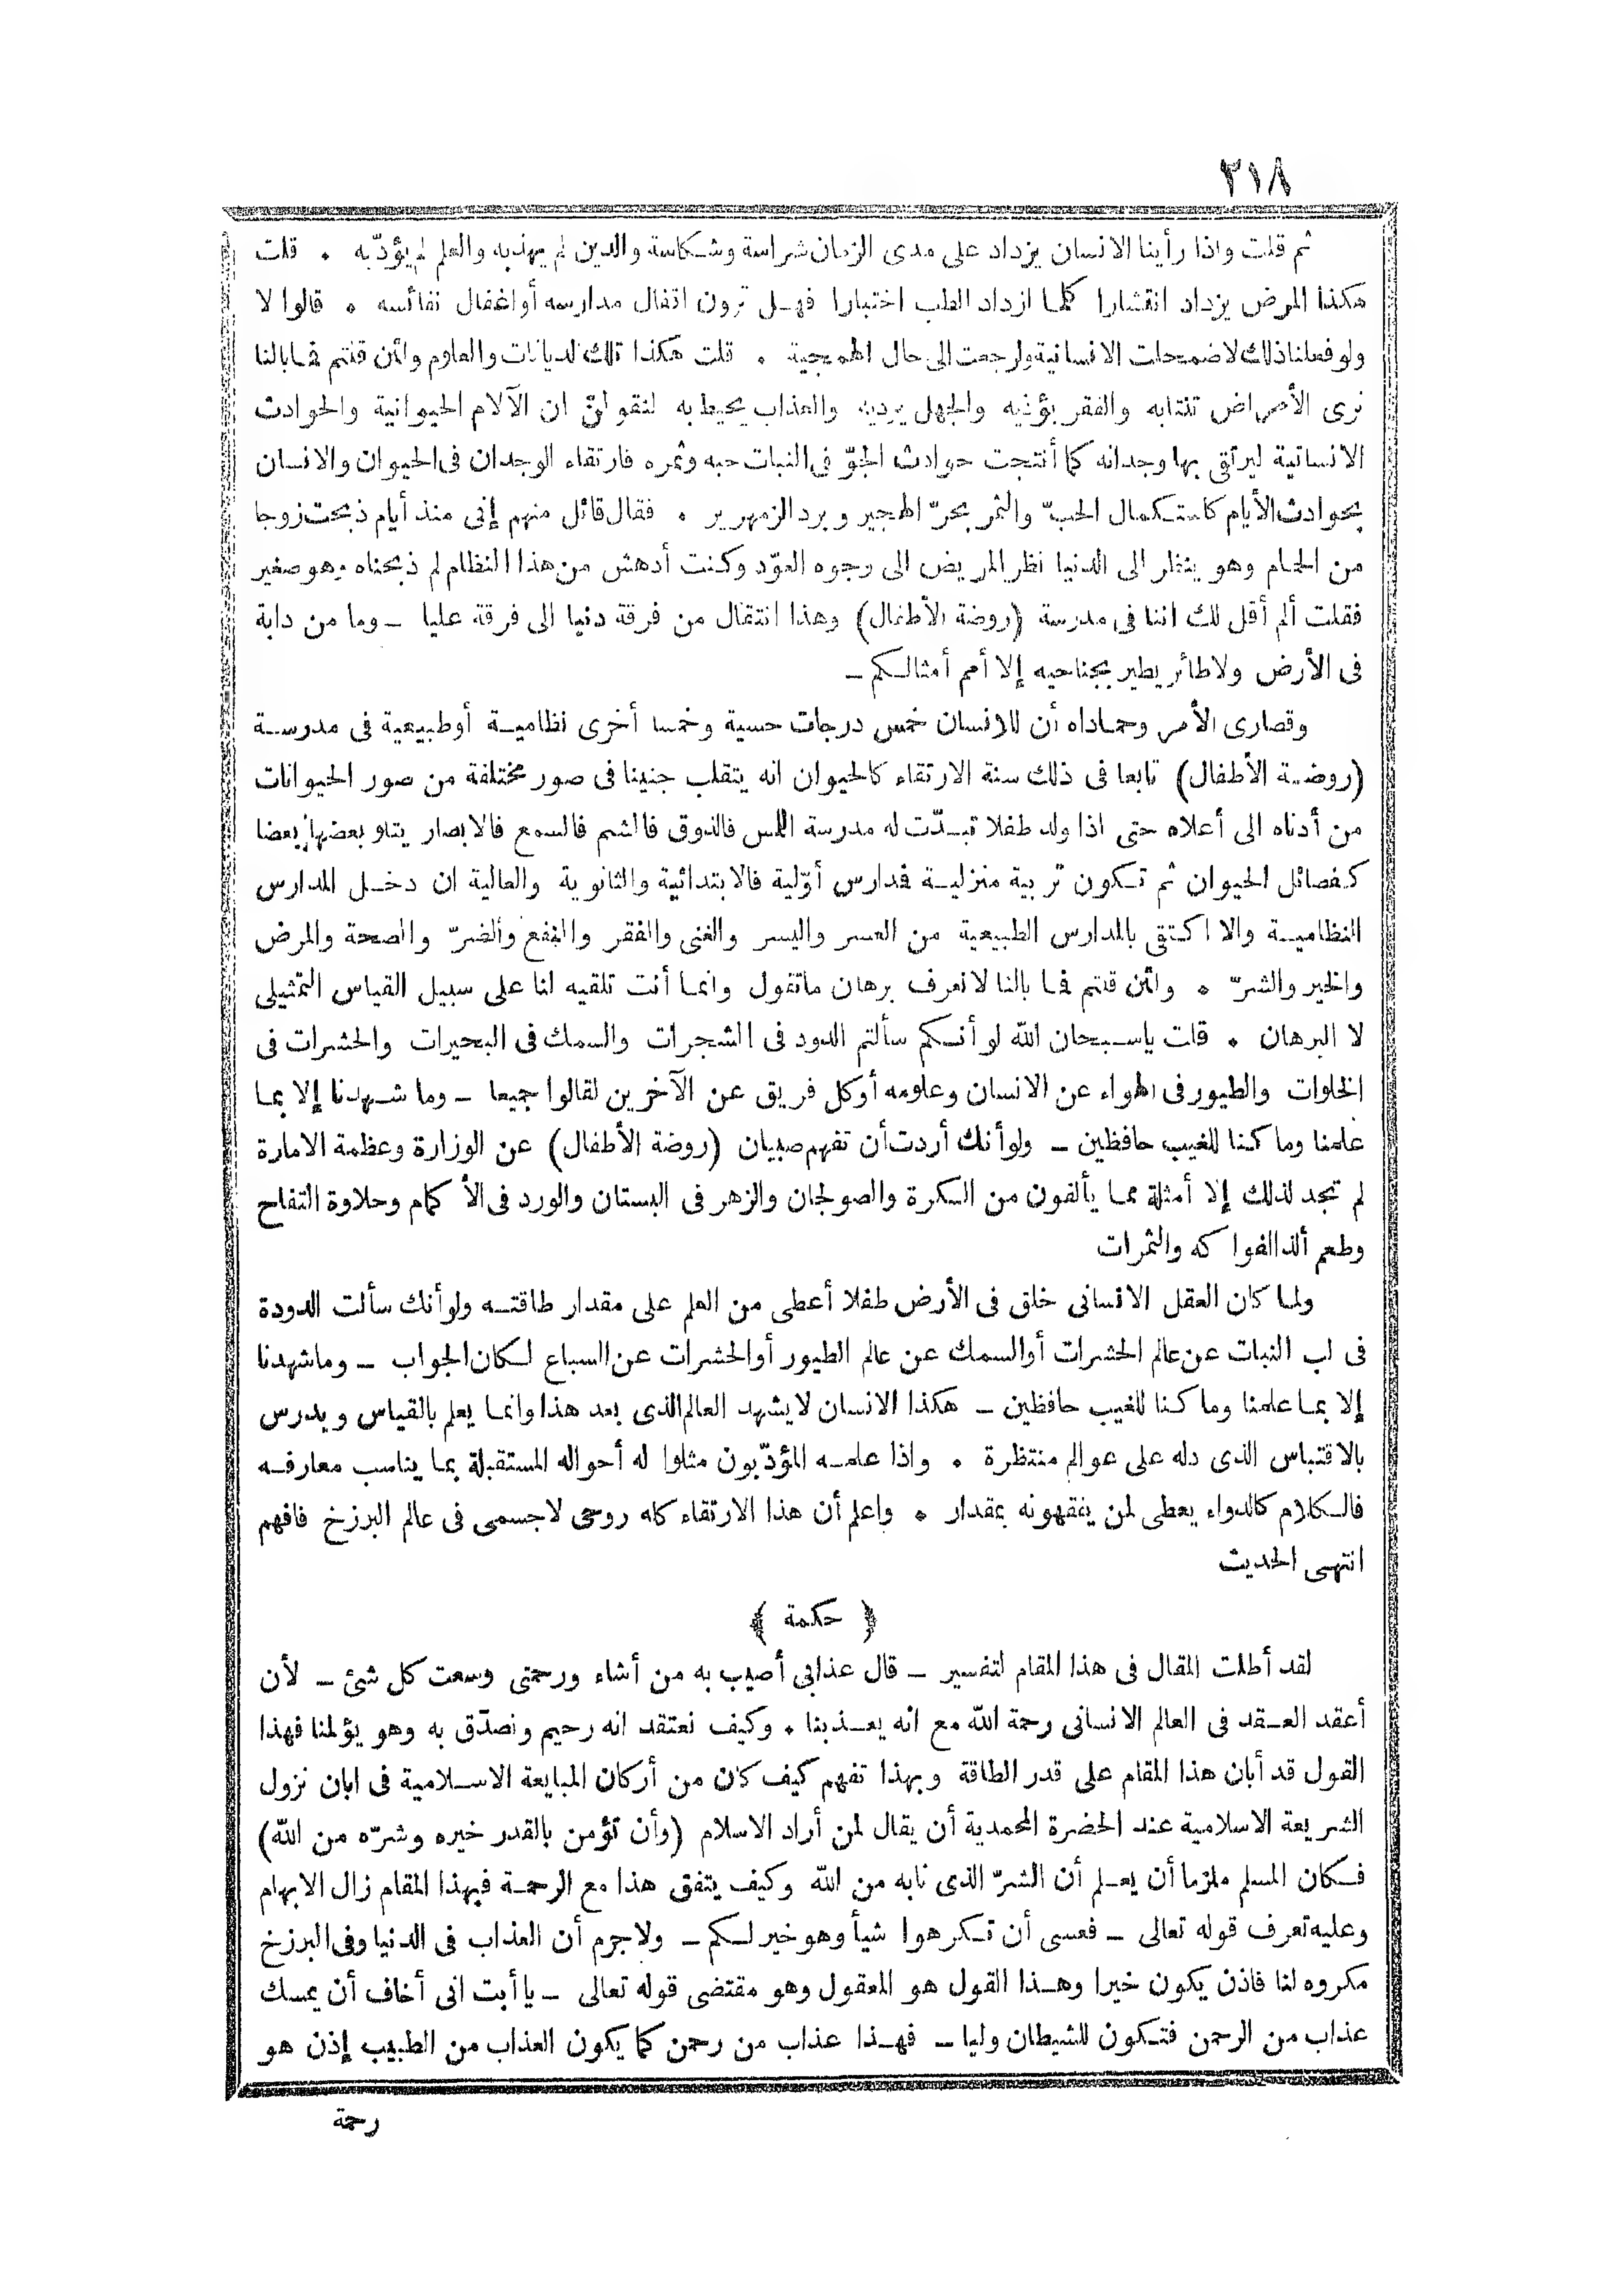 ٢١٨
ثم قلت واذا رأينا الانسان يزداد على مدى الزمان شراسة وشكاسة والدين لم يهذبه والعلم لم يؤدّبه . قلت
هكذا المرض يزداد انتشارا كلما ازداد الطب اختبارا فهل ترون اقفال مدارسه أو اغفال نفائسه . قالوا لا
ولو فعلنا ذلك لاضمحلت الانسانية ولرجعت الى حال الهمجية . قلت هكذا تلك الديانات والعلوم ولئن قلتم فما بالنا
نرى الأمراض تنتابه والفقر يؤذيه والجهل يرديه والعذاب يحيط به لنقولنّ ان الآلام الحيوانية والحوادث
الانسانية ليرتقي بها وجدانه كما أنتجت حوادث الجوّ فى النبات حبه وثمره فارتقاء الوجدان فى الحيوان والانسان
بحوادث الأيام كاستكمال الحبّ والثمر بحرّ الهجير وبرد الزمهرير . فقال قائل منهم إنى منذ أيام ذبحت زوجا
من الحمام وهو ينظر الى الدنيا نظر المريض الى وجوه العوّد وكنت أدهش من هذا النظام لم ذبحناه وهو صغير
فقلت ألم أقل لك اننا فى مدرسة (روضة الأطفال) وهذا انتقال من فرقة دنيا الى فرقة عليا ــ وما من دابة
فى الأرض ولا طائر يطير بجناحيه إلا أمم أمثالكم ــ
وقصارى الأمر وحماداه أن للانسان خمس درجات حسية وخمسا أخرى نظامية أو طبيعية فى مدرسة
(روضة الأطفال) تابعا فى ذلك سنة الارتقاء كالحيوان انه يتقلب جنينا فى صور مختلفة من صور الحيوانات
من أدناه الى أعلاه حتى اذا ولد طفلا تبدّت له مدرسة اللمس فالذوق فالشم فالسمع فالابصار يتلو بعضها بعضا
كفصائل الحيوان ثم تكون تربية منزلية فمدارس أوّلية فالابتدائية والثانوية والعالية ان دخل المدارس
النظامية والا اكتفى بالمدارس الطبيعية من العسر واليسر والغنى والفقر والنفع والضرّ والصحة والمرض
والخير والشرّ . ولئن قلتم فما بالنا لا نعرف برهان ما تقول وانما أنت تلقيه لنا على سبيل القياس التمثيلى
لا البرهان . قلت ياسبحان الله لو أنكم سألتم الدود فى الشجرات والسمك فى البحيرات والحشرات فى
الخلوات والطيور فى الهواء عن الانسان وعلومه أو كل فريق عن الآخرين لقالوا جميعا ــ وما شهدنا إلا بما
علمنا وما كنا للغيب حافظين ــ ولو أنك أردت أن تفهم صبيان (روضة الأطفال) عن الوزارة وعظمة الامارة
لم تجد لذلك إلا أمثلة مما يألفون من الكرة والصولجان والزهر فى البستان والورد فى الأكمام وحلاوة التفاح
وطعم ألذ الفواكه والثمرات
ولما كان العقل الانسانى خلق فى الأرض طفلا أعطى من العلم على مقدار طاقته ولو أنك سألت الدودة
فى لب النبات عن عالم الحشرات أو السمك عن عالم الطيور أو الحشرات عن السباع لكان الجواب ــ وما شهدنا
إلا بما علمنا وما كنا للغيب حافظين ــ هكذا الانسان لا يشهد العالم الذى بعد هذا وانما يعلم بالقياس ويدرس
بالاقتباس الذى دله على عوالم منتظرة . واذا علمه المؤدّبون مثلوا له أحواله المستقبلة بما يناسب معارفه
فالكلام كالدواء يعطى لمن يفقهونه بمقدار . واعلم أن هذا الارتقاء كله روحى لا جسمى فى عالم البرزخ فافهم
انتهى الحديث
﴿ حكمة ﴾
لقد أطلت المقال فى هذا المقام لتفسير ــ قال عذابى أصيب به من أشاء ورحمتى وسعت كل شئ ــ لأن
أعقد العقد فى العالم الانسانى رحمة الله مع انه يعذبنا . وكيف نعتقد انه رحيم ونصدّق به وهو يؤلمنا فهذا
القول قد أبان هذا المقام على قدر الطاقة وبهذا تفهم كيف كان من أركان المبايعة الاسلامية فى ابان نزول
الشريعة الاسلامية عند الحضرة المحمدية أن يقال لمن أراد الاسلام (وأن تؤمن بالقدر خيره وشرّه من الله)
فكان المسلم ملزما أن يعلم أن الشرّ الذى نابه من الله وكيف يتفق هذا مع الرحمة فبهذا المقام زال الابهام
وعليه تعرف قوله تعالى ــ فعسى أن تكرهوا شيأ وهو خير لكم ــ ولا جرم أن العذاب فى الدنيا وفى البرزخ
مكروه لنا فاذن يكون خيرا وهذا القول هو المعقول وهو مقتضى قوله تعالى ــ يا أبت انى أخاف أن يمسك
عذاب من الرحمن فتكون للشيطان وليا ــ فهذا عذاب من رحمن كما يكون العذاب من الطبيب إذن هو
رحمة